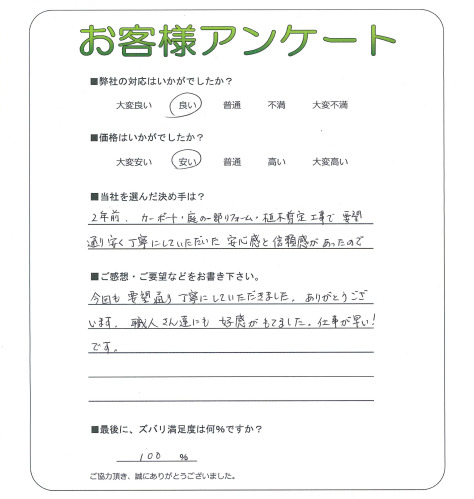 お客様アンケート
■弊社の対応はいかがでしたか？
大変良い 良い 普通 不満 大変不満
■価格はいかがでしたか？
大変安い 安い 普通 高い 大変高い
■当社を選んだ決め手は？
2年前、カーポート・庭の一部リフォーム・植木剪定工事で要望
通り安く丁寧にしていただいた安心感と信頼感があったので
■ご感想・ご要望などをお書き下さい。
今回も要望通り丁寧にしていただきました。ありがとうござ
います。職人さん達にも好感がもてました。仕事が早い！
です。
■最後に、ズバリ満足度は何％ですか？
100 %
ご協力頂き、誠にありがとうございました。